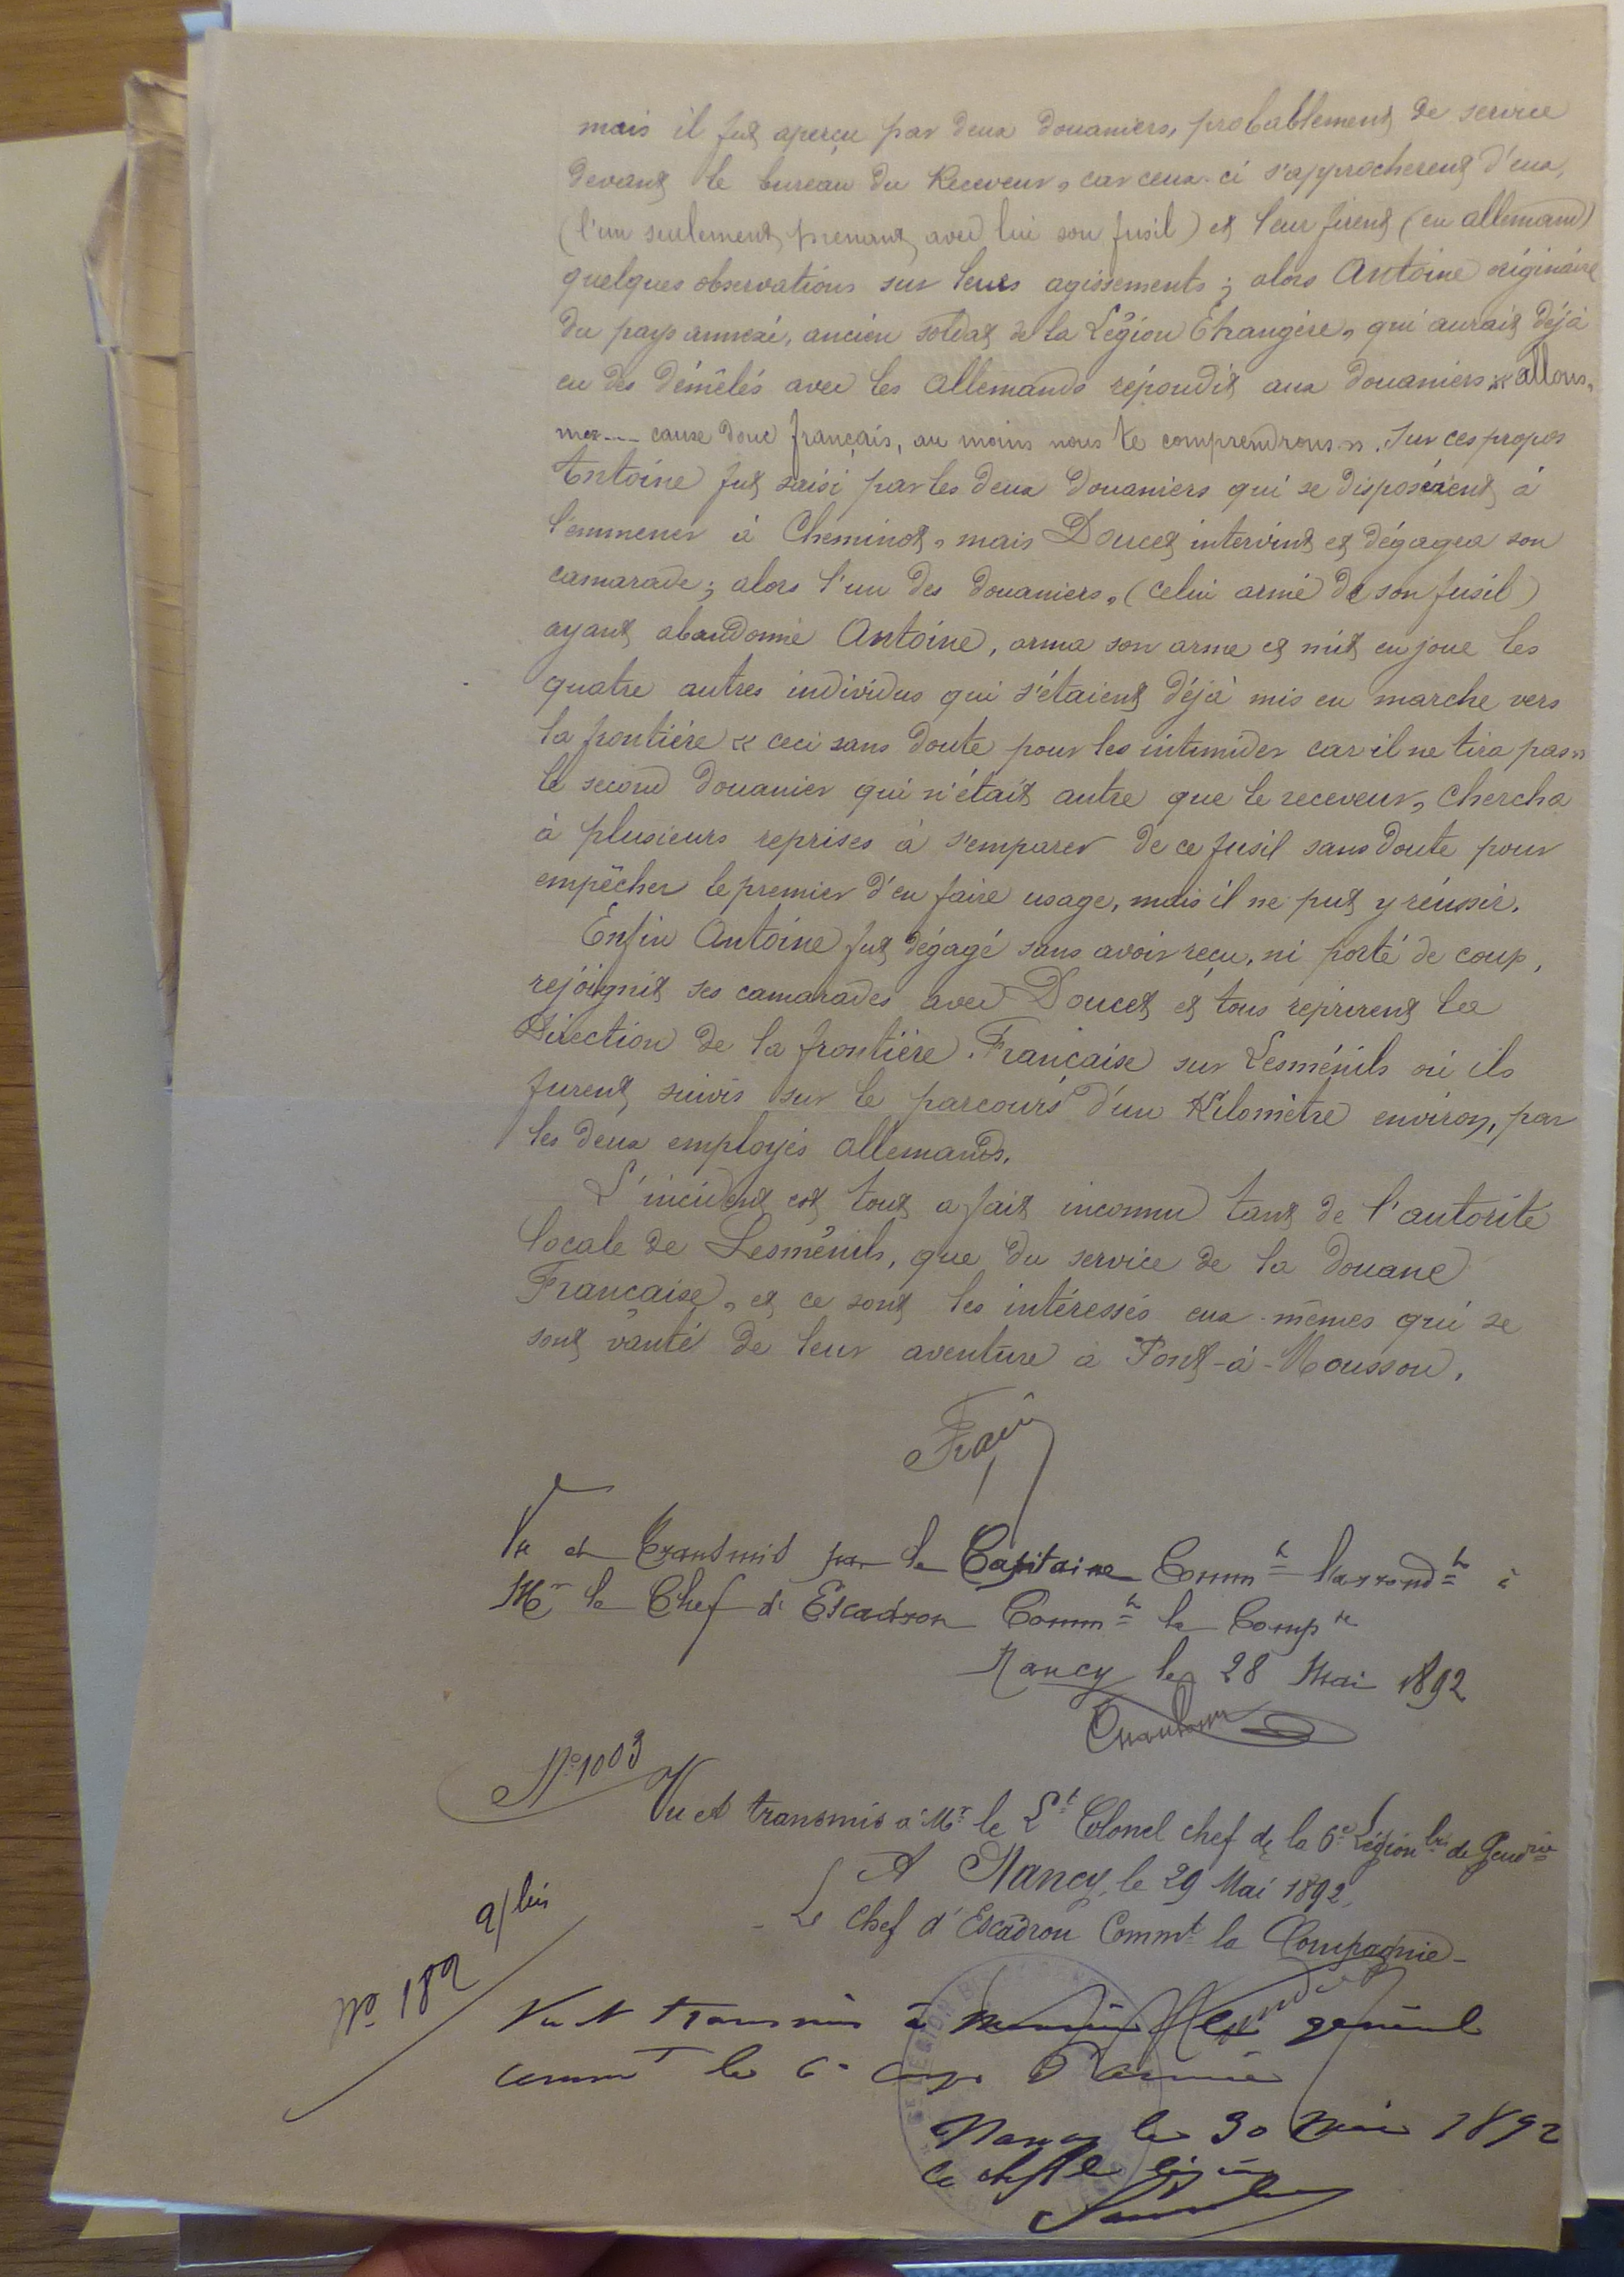 mais il fut aperçu par deux douaniers, probablement de service
devant le bureau du Receveur, car ceux-ci s'approcherent d'eux,
(l'un seulement, prenant avec lui son fusil) et leur firent (en allemand)
quelques observations sur leurs agissements ; alors Antoine originaire
du pays annexé, ancien soldat de la Légion Étrangère, qui aurait déjà
eu des démêlés avec les allemands répondit aux douaniers « allons,
mer--- cause donc français, au moins nous te comprendrons ». Sur ces propos
Antoine fut saisi par les deux douaniers qui se disposaient à
l'emmener à Cheminot, mais Doucet intervint et dégagea son
camarade ; alors l'un des douaniers, (celui armé de son fusil)
ayant abandonné Antoine, arma son arme et mit en joue les
quatre autres individus qui s'étaient déjà mis en marche vers
la frontière « ceci sans doute pour les intimider car il ne tira pas »
le second douanier qui n'était autre que le receveur, chercha
à plusieurs reprises à s'emparer de ce fusil sans doute pour
empêcher le premier d'en faire usage, mais il ne put y réussir.
Enfin Antoine fut dégagé sans avoir reçu, ni porté de coup,
rejoignit ses camarades avec Doucet et tous reprirent la
Direction de la frontière Française sur Lesménils où ils
furent suivis sur le parcours d'un Kilomètre environ, par
les deux employés allemands.
L'incident est tout a fait inconnu tant de l'autorité
locale de Lesménils, que du service de la douane
Française, et ce sont les intéressés eux-mêmes qui se
sont vanté de leur aventure à Pont-à-Mousson.
Vu et Transmis par le Capitaine Commt l'arrondt à
Mr le Chef d'Escadron Commt la Compie
Nancy le 28 Mai 1892
No 1003
Vu et transmis à Mr le Lt Colonel chef de la 6e Légion bis de Gendrie
A Nancy, le 29 Mai 1892,
Le Chef d'Escadron Commt la Compagnie
No 182 9/bis
Vu et transmis à Monsieur le général
commt le 6e corps d'armée
Nancy le 30 Mai 1892
Le chef de légion